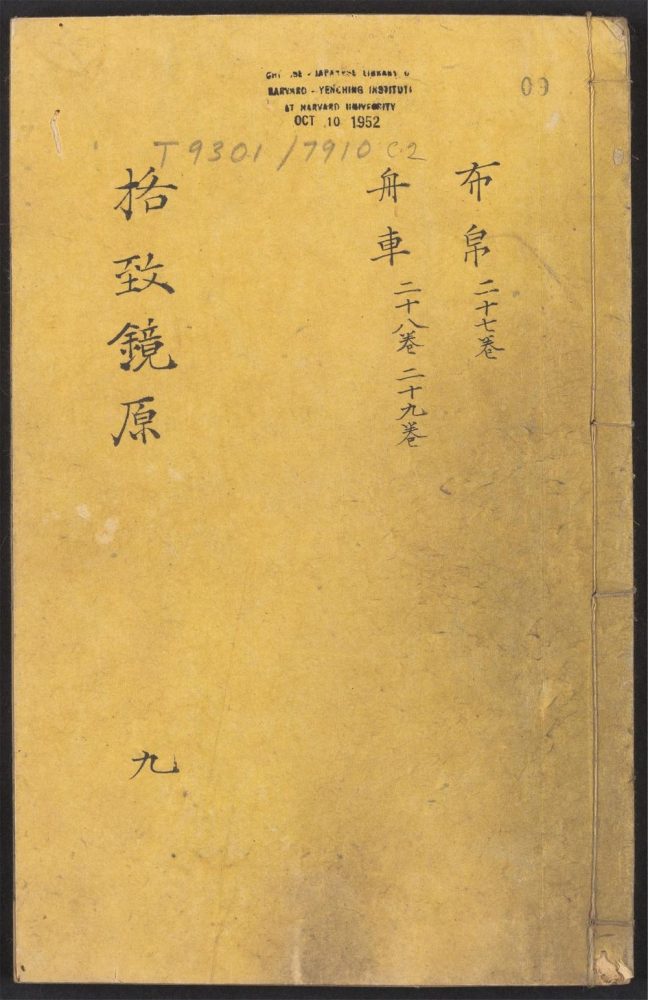 CHINESE - JAPANESE LIBRARY O
HARVARD - YENCHING INSTITUTE
AT HARVARD UNIVERSITY
OCT 10 1952
09
T 9301 / 7910 C.2
布帛 二十七卷
舟車 二十八卷 二十九卷
格致鏡原
九